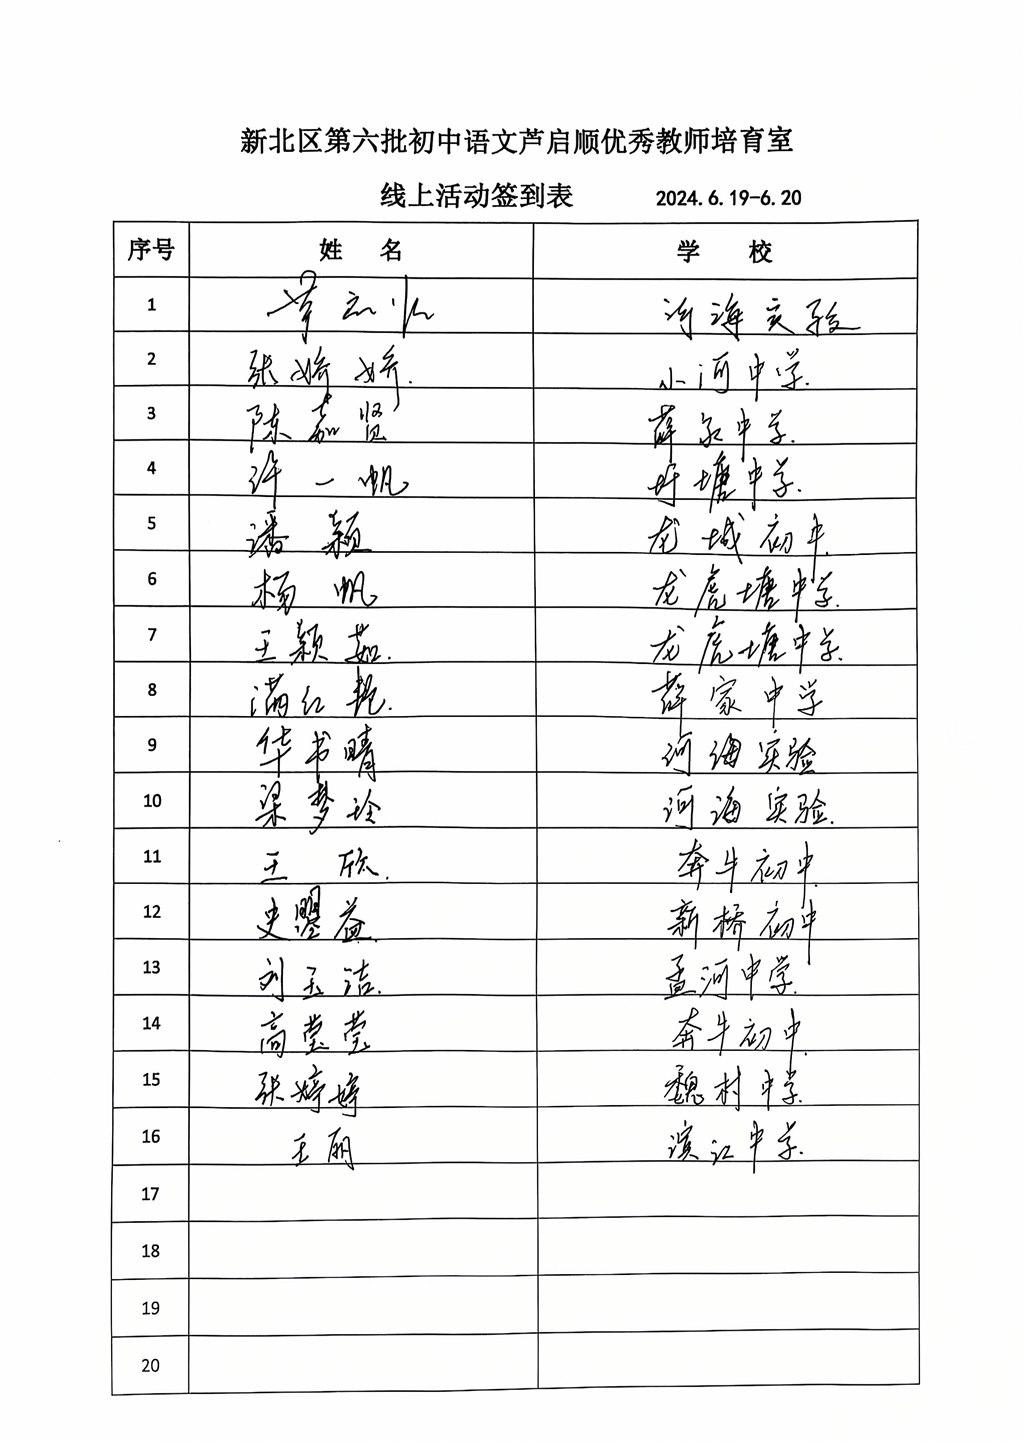 新北区第六批初中语文芦启顺优秀教师培育室
线上活动签到表 2024.6.19-6.20
序号 姓 名 学 校
1 河海实验
2 张娇娇. 小河中学.
3 陈嘉贤 薛家中学.
4 许一帆 圩塘中学.
5 潘颖 龙城初中.
6 杨帆 龙虎塘中学.
7 王颖茹. 龙虎塘中学.
8 满红艳. 薛家中学
9 华书晴 河海实验
10 梁梦玲 河海实验.
11 王欣. 奔牛初中.
12 史曌益. 新桥初中
13 刘玉洁. 孟河中学.
14 高莹莹 奔牛初中.
15 张婷婷 魏村中学.
16 王丽 滨江中学.
17
18
19
20